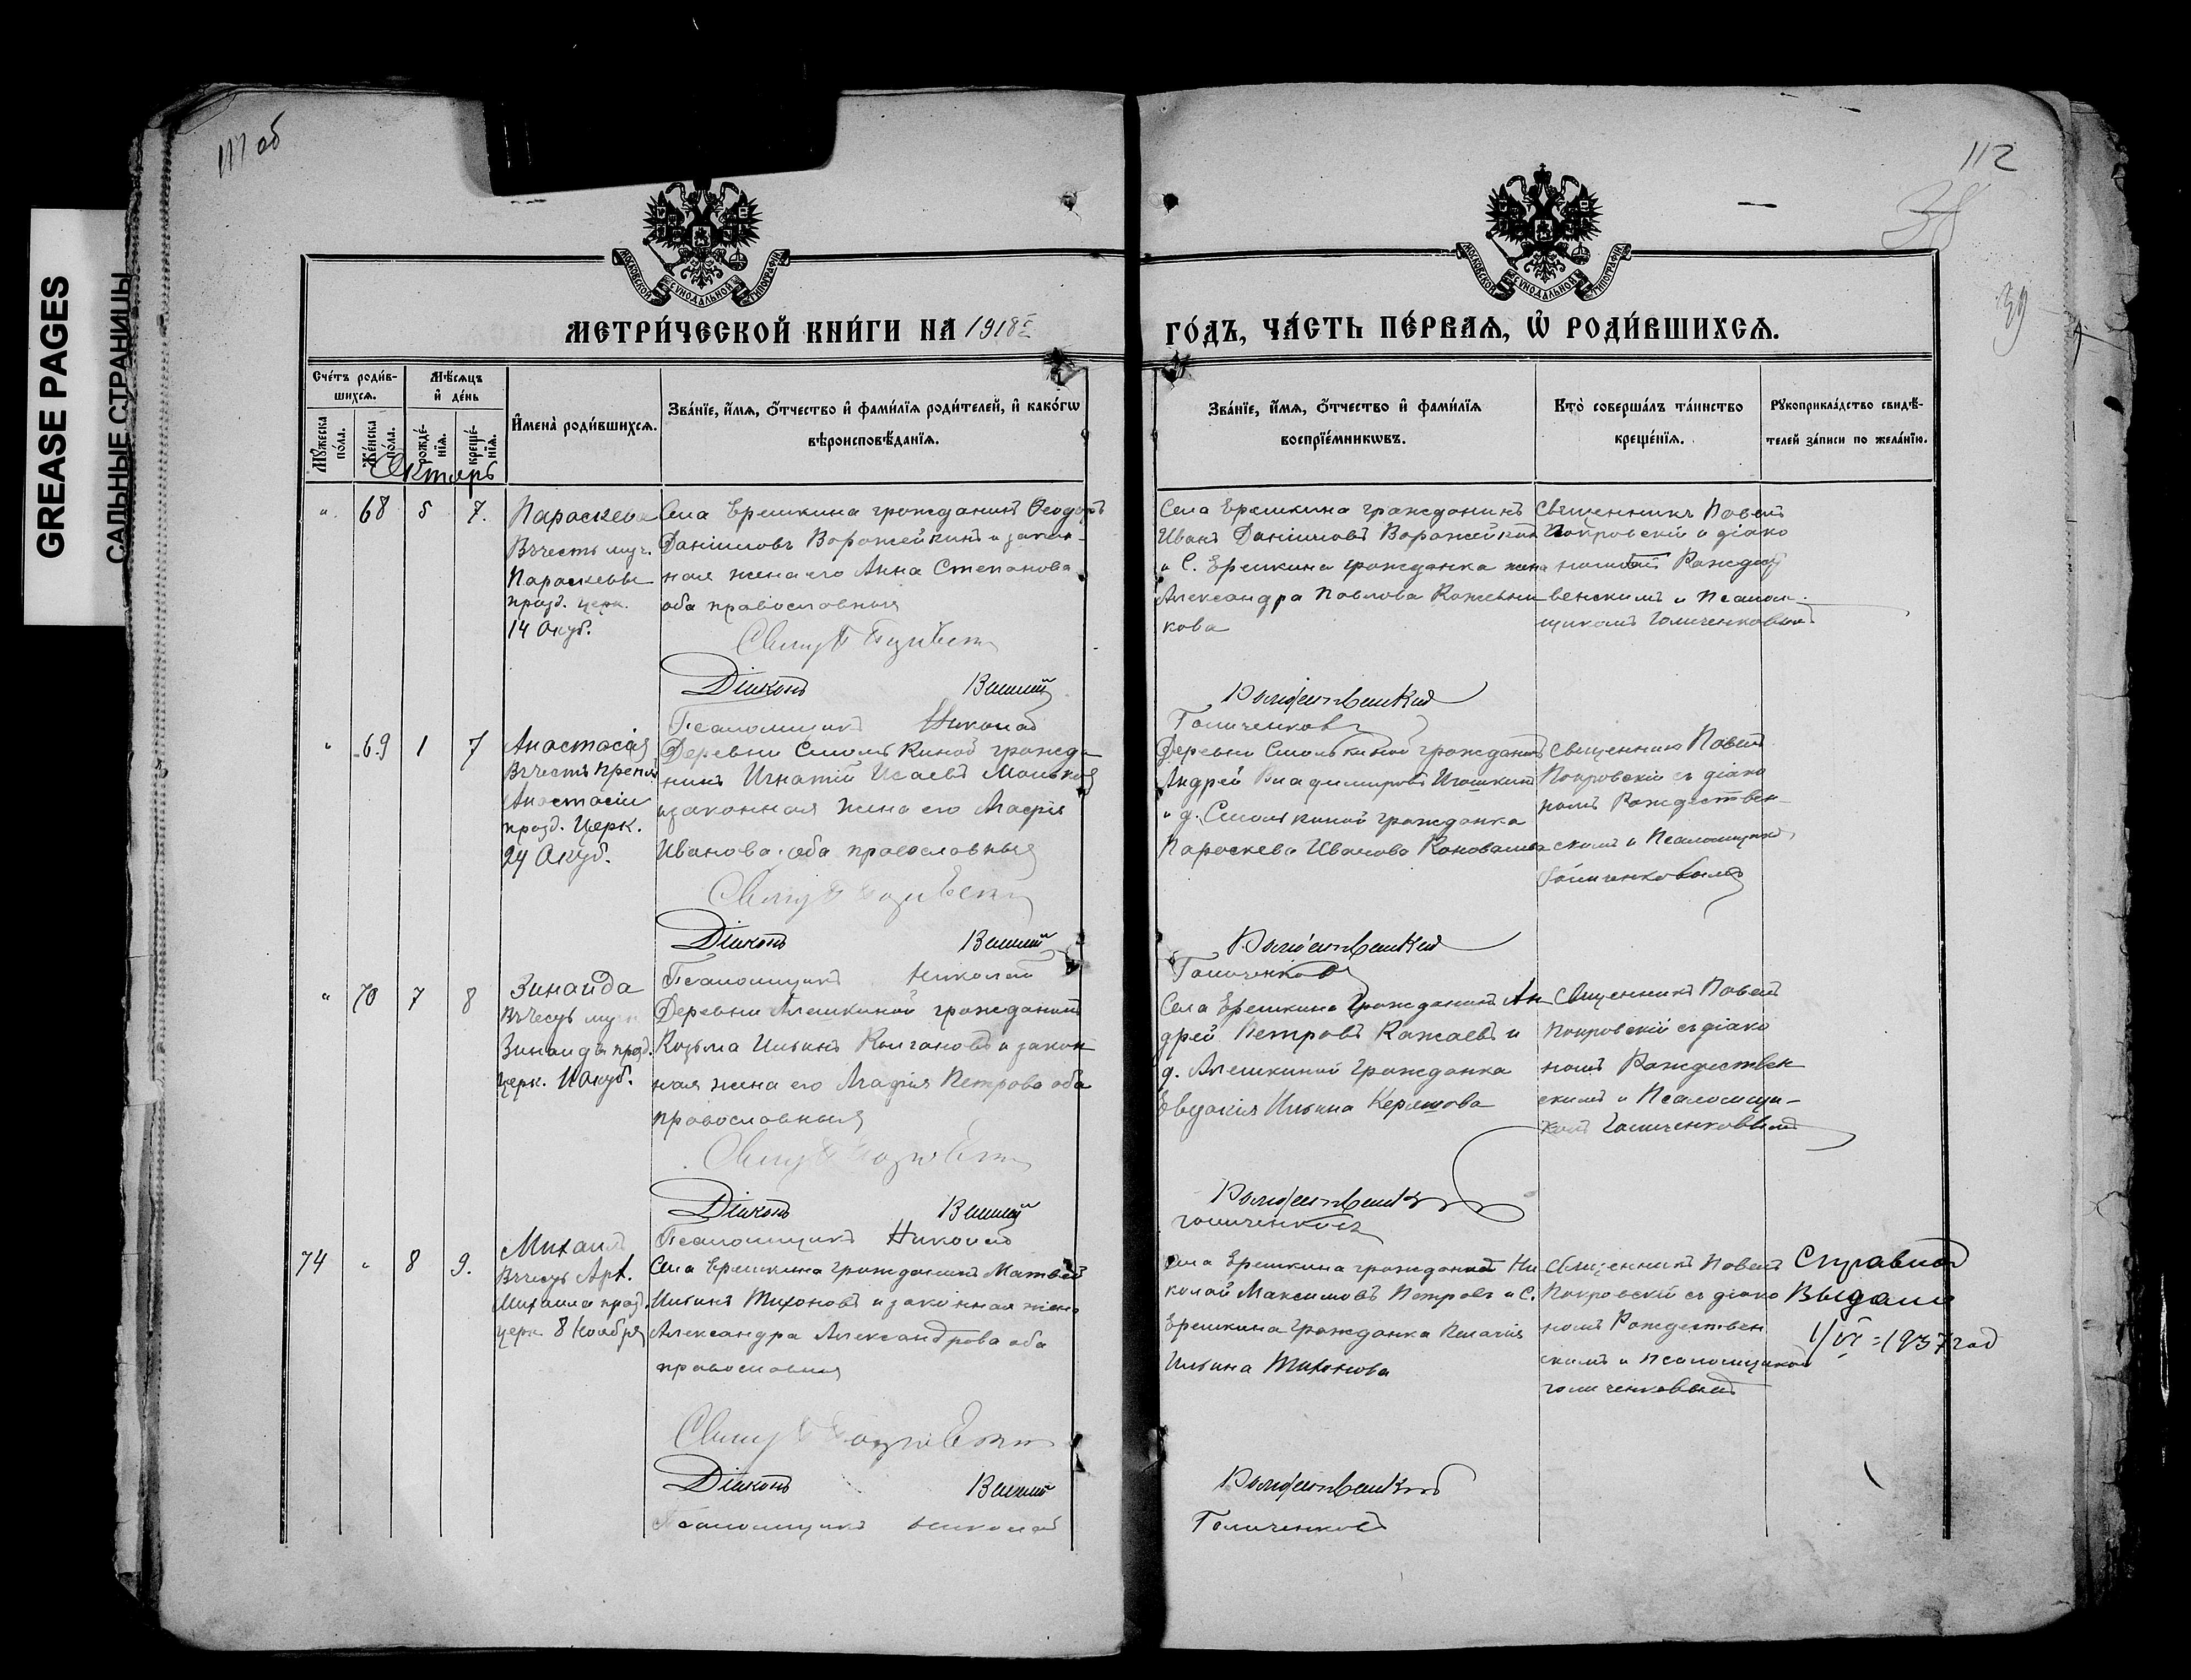 GREASE PAGES
САЛЬНЫЕ СТРАНИЦЫ
111 об
112
38
39
МОСКОВСКОЙ СѴНОДАЛЬНОЙ ТИПОГРАФІИ
МОСКОВСКОЙ СѴНОДАЛЬНОЙ ТИПОГРАФІИ
МЕТРИ́ЧЕСКОЙ КНИ́ГИ НА 1918й
ГО́ДЪ, ЧА́СТЬ ПЕ́РВАѦ, Ѡ҆ РОДИ́ВШИХСѦ.
Сче́тъ роди́в-
шихсѧ.
Мѣ́сѧцъ
и҆ де́нь
Мꙋ́жеска
по́ла.
Же́нска
по́ла.
рожде́-
нїѧ.
креще́-
нїѧ.
И҆мена̀ роди́вшихсѧ.
Зва́нїе, и҆́мѧ, ѻ҆́тчество и҆ фами́лїѧ роди́телей, и҆ како́гѡ
вѣроисповѣ́данїѧ.
Зва́нїе, и҆́мѧ, ѻ҆́тчество и҆ фами́лїѧ
воспрїе́мникѡвъ.
Кто̀ соверша́лъ та́инство
креще́нїѧ.
Рꙋкоприкла́дство свидѣ́-
телей за́писи по жела́нїю.
Октябрь
" 68 5 7.
Параскева
Въ честь муч.
Параскевы
празд. церк.
14 Окт.
Села Ерешкина гражданинъ Ѳеодоръ
Даніиловъ Ворожейкинъ и закон-
ная жена его Анна Степанова
оба православныя
Свящ
Діаконъ Василій
Псаломщикъ Николай
Села Ерешкина гражданинъ
Иванъ Даніиловъ Ворожейкинъ
и С. Ерешкина гражданка жена
Александра Павлова Кожевни-
кова
Рождественскій
Голиченковъ
Священникъ Павелъ
Покровскій и діако
номъ Рождест
венскимъ и Псалом-
щикомъ Голиченковымъ
" 69 1 7
Анастасія
Въ честь Препод
Анастасіи
празд. Церк.
29 Окт.
Деревни Смолькиной гражда
нинъ Игнатій Исаевъ
и законная жена его Марія
Иванова. оба православныя
Свящ
Діаконъ Василій
Псаломщикъ Николай
Деревни Смолькиной гражданинъ
Андрей Владиміровъ Игошкинъ
и д. Смолькиной гражданка
Параскева Иванова Коновалова
Рождественскій
Голиченковъ
Священникъ Павелъ
Покровскій съ діако
номъ Рождествен-
скимъ и Псаломщико
Голиченковымъ
" 70 7 8
Зинаида
Въ честь муч
Зинаиды празд.
церк. 11 Окт.
Деревни Алешкиной гражданинъ
Козьма Ильинъ Колгановъ и закон
ная жена его Агафія Петрова оба
православныя
Свящ
Діаконъ Василій
Псаломщикъ Николай
Села Ерешкина Гражданинъ Ан
дрей Петровъ Кажаевъ и
д. Алешкиной Гражданка
Евдокія Ильина
Рождественскій
Голиченковъ
Священникъ Павелъ
Покровскій съ діако
номъ Рождествен
скимъ и Псаломщи-
комъ Голиченковымъ
74 " 8 9.
Михаилъ
Въ честь Арх.
Михаила празд.
церк. 8 Ноября
Села Ерешкина гражданинъ Матвей
Ильинъ Тихоновъ и законная жена
Александра Александрова оба
православныя
Свящ
Діаконъ Василій
Псаломщикъ Николай
Села Ерешкина гражданинъ Ни
колай Максимовъ Петровъ и С.
Ерешкина гражданка Пелагія
Ильина Тихонова
Рождественскій
Голиченковъ
Священникъ Павелъ
Покровскій съ діако
номъ Рождествен
скимъ и псаломщикомъ
голиченковымъ
Справка
Выдана
1/VI=1937 год